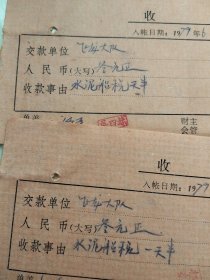 收
入帐日期：1979年6
交款单位 飞跃大队
人民币(大写) 叁元正
收款事由 水泥船税一天半
财主
会管
收
入帐日期：1979
交款单位 飞跃大队
人民币(大写) 叁元正
收款事由 水泥船税一天半